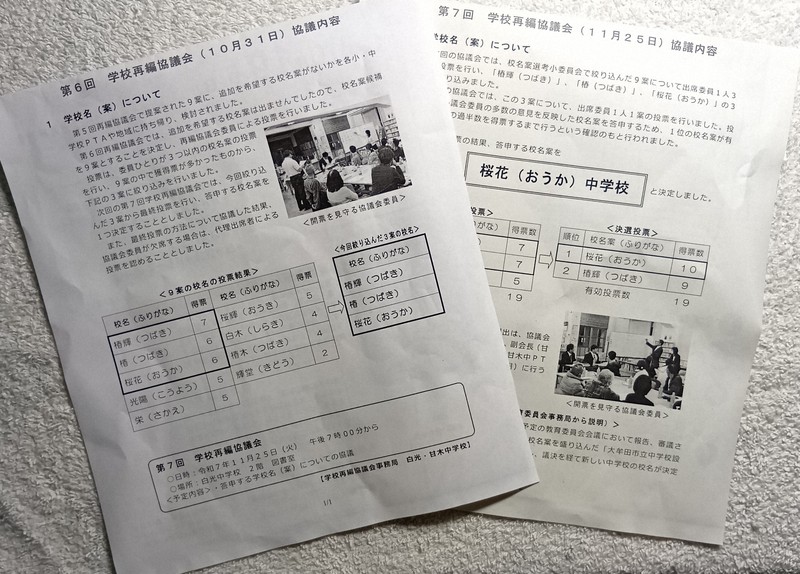 第6回 学校再編協議会（10月31日）協議内容
1 学校名（案）について
第5回再編協議会で提案された9案に、追加を希望する校名案がないかを各小・中
学校PTAや地域に持ち帰り、検討されました。
第6回再編協議会では、追加を希望する校名案は出ませんでしたので、校名案候補
を9案とすることを決定し、再編協議会委員による投票を行いました。
投票は、委員ひとりが3つ以内の校名案の投票
を行い、9案の中で獲得票が多かったものから、
下記の3案に絞り込みを行いました。
次回の第7回学校再編協議会では、今回絞り込
んだ3案から最終投票を行い、答申する校名案を
1つ決定することとしました。
また、最終投票の方法について協議した結果、
協議会委員が欠席する場合は、代理出席者による
投票を認めることとしました。
＜開票を見守る協議会委員＞
＜9案の校名の投票結果＞
校名（ふりがな） 得票 校名（ふりがな） 得票
椿輝（つばき） 7 桜輝（おうき） 5
椿（つばき） 6 白木（しらき） 4
桜花（おうか） 6 椿木（つばき） 4
光陽（こうよう） 5 輝堂（きどう） 2
栄（さかえ） 5
＜今回絞り込んだ3案の校名＞
校名（ふりがな）
椿輝（つばき）
椿（つばき）
桜花（おうか）
第7回 学校再編協議会
○日時：令和7年11月25日（火） 午後7時00分から
○場所：白光中学校 2階 図書室
＜予定内容＞・答申する学校名（案）についての協議
【学校再編協議会事務局 白光・甘木中学校】
1/1
第7回 学校再編協議会（11月25日）協議内容
校名（案）について
回の協議会では、校名案選考小委員会で絞り込んだ9案について出席委員1人3
投票を行い、「椿輝（つばき）」、「椿（つばき）」、「桜花（おうか）」の3
り込みました。
の協議会では、この3案について、出席委員1人1案の投票を行いました。投
議会委員の多数の意見を反映した校名案を答申するため、1位の校名案が有
の過半数を得票するまで行うという確認のもと行われました。
票の結果、答申する校名案を
桜花（おうか）中学校
と決定しました。
投票＞
がな） 得票数
7
7
5
19
＜決選投票＞
順位 校名案（ふりがな） 得票数
1 桜花（おうか） 10
2 椿輝（つばき） 9
有効投票数 19
出は、協議会
副会長（甘
甘木中PT
に行う
＜開票を見守る協議会委員＞
教育委員会事務局から説明）＞
予定の教育委員会会議において報告、審議さ
校名案を盛り込んだ「大牟田市立中学校設
、議決を経て新しい中学校の校名が決定